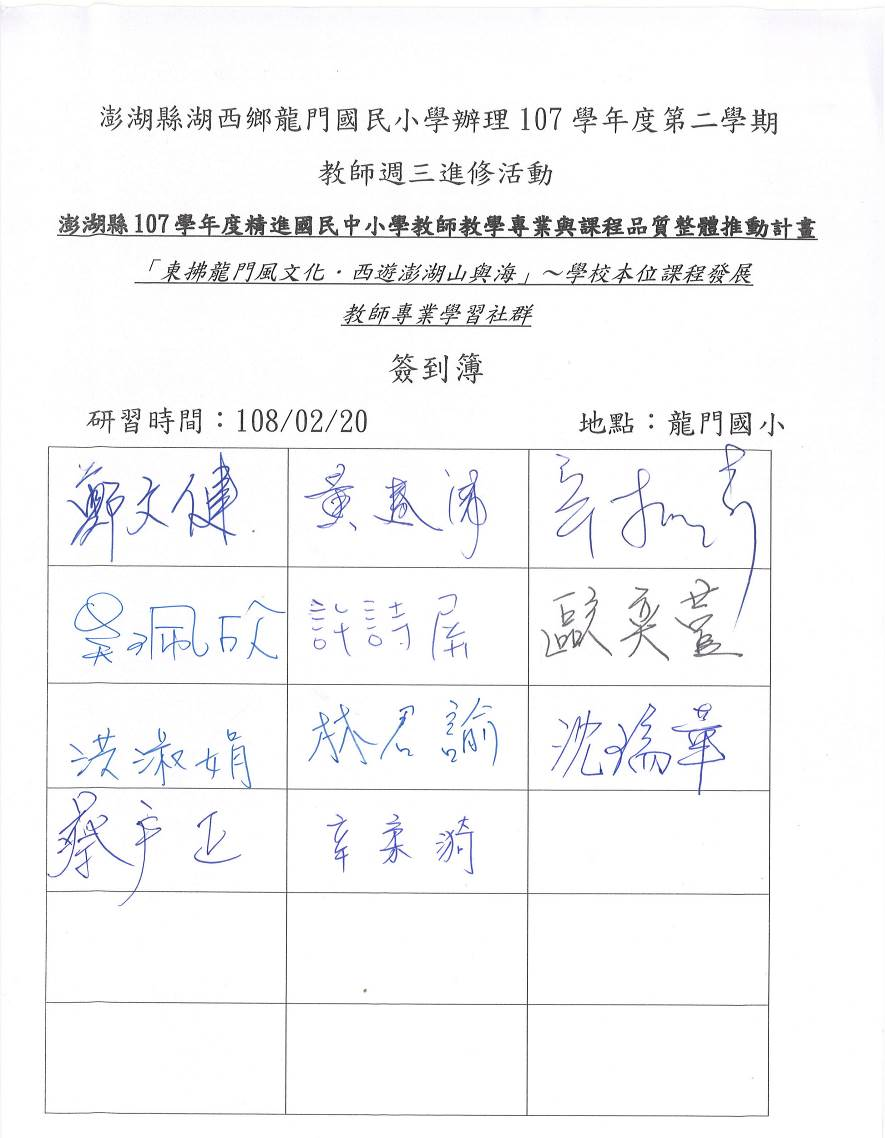 澎湖縣湖西鄉龍門國民小學辦理 107 學年度第二學期
教師週三進修活動
澎湖縣 107 學年度精進國民中小學教師教學專業與課程品質整體推動計畫
「東拂龍門風文化．西遊澎湖山與海」～學校本位課程發展
教師專業學習社群
簽到簿
研習時間：108/02/20 地點：龍門國小
鄭文健 黃
吳珮欣 許詩屏 歐奕萱
洪淑娟 林君諭 沈瑞華
蔡 正 辛柔漪